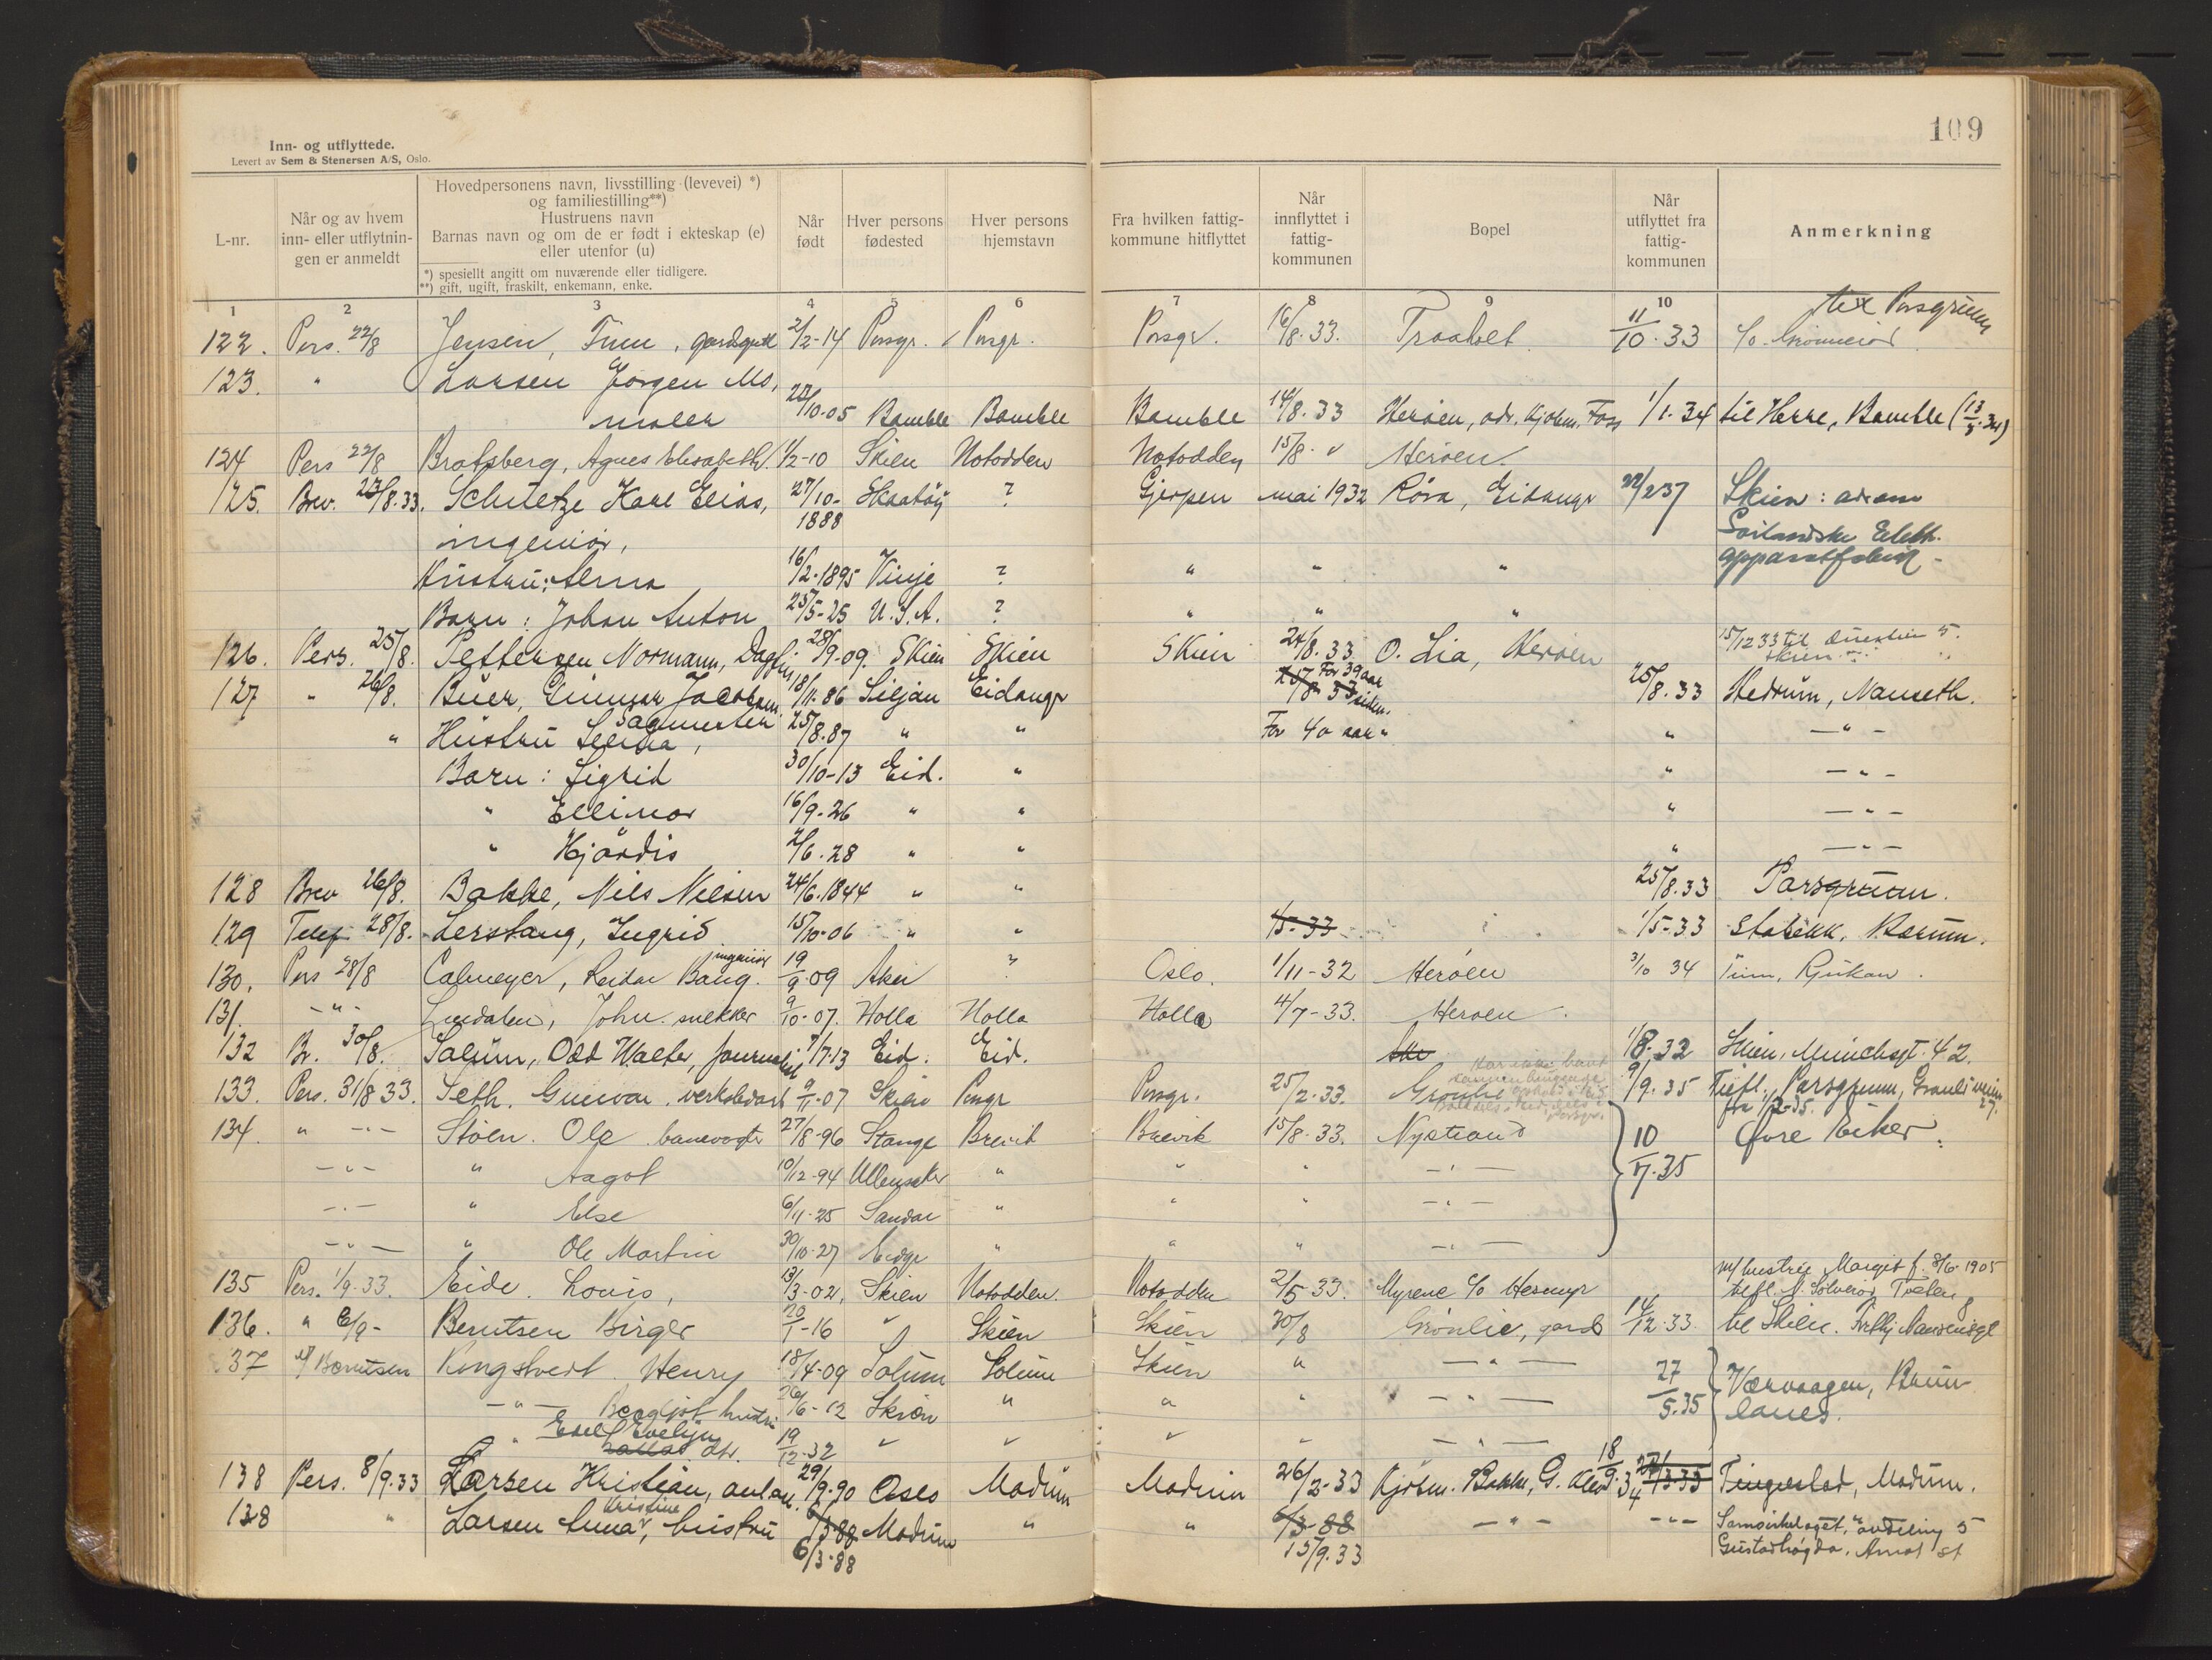 109
Inn- og utflyttede.
Levert av Sem & Stenersen A/S, Oslo.
L-nr.
Når og av hvem inn- eller utflytnin-gen er anmeldt
Hovedpersonens navn, livsstilling (levevei) *)
og familiestilling**)
Hustruens navn
Barnas navn og om de er født i ekteskap (e)
eller utenfor (u)
*) spesiellt angitt om nuværende eller tidligere.
**) gift, ugift, fraskilt, enkemann, enke.
Når født
Hver persons fødested
Hver persons hjemstavn
Fra hvilken fattig-kommune hitflyttet
Når innflyttet i fattig-kommunen
Bopel
Når utflyttet fra fattig-kommunen
Anmerkning
1 2 3 4 5 6 7 8 9 10
122. Pers. 22/8 Jensen, Finn, 2/2-14 Porsgr. Porsgr. Porsgr. 16/8.33. 11/10.33 til Porsgrunn
123. " Larsen Jørgen Mo,
maler 22/10-05 Bamble Bamble Bamble 14/8.33 Herøen, adr. Kjøbm. Foss 1/1.34 til Herre, Bamble (13/3.34)
124 Pers 22/8 Bratsberg, Agnes Elisabeth 1/2-10 Skien Notodden Notodden 15/8. " Herøen.
125. Brev. 23/8.33. Schultze Karl Elias, 27/10-1888 Skaatøy ? Gjerpen mai 1932 Røra, Eidanger 22/2 37 Skien: adr am
ingeniør, Sørlandske Elekt.
Hustru: Alma 16/2-1895 Vinje ? " " " apparatfabrik -
Barn: Johan Anton 25/5-25 U.S.A. ? " " "
126. Pers. 25/8. Pettersen Normann, Dagfin 28/9-09. Skien Skien Skien 24/8.33 O. Lia, Herøen 15/12 33 til 5. Skien
127 " 26/8. Buer, Gunnar Jacobsen 18/11-86 Siljan Eidangr 25/8 33 For 39 aar siden. 25/8.33 Hedrum, Nanseth.
" Hustru 25/8.87 " " For 40 aar " " - " -
Barn: Sigrid 30/10-13 Eid. " " - " -
" Ellinor 16/9-26 " " " - " -
" Hjördis 2/6.28 " " " - " -
128 Brev 26/8. Bakke, Nils Nielsen 24/6.1844 " " 25/8.33 Porsgrunn.
129 Telef 28/8. Lerstang, Ingrid 15/10-06 " " 1/5-33 1/5-33 Stabekk, Bærum.
130. Pers 28/8 Calmeyer, Reidar Bang. ingeniør 19/9-09 Aker ? Oslo. 1/11-32 Herøen 3/10 34 Tinn, Rjukan.
131. - " - Lindalen, John. snekker 9/10-07. Holla Holla Holla 4/7-33. Herøen.
132 Br. 30/8. Solum, Odd Walter, journalist 7/7.13 Eid. Eid. Ski 1/8.32 Skien, Munchsgt. 42.
133. Pers. 31/8 33. Seth. Gunvar. 9/11-07 Skien Porsgr Porsgr. 25/2-33. Grønlie 9/9.35 Tilfl. Porsgrunn, 27.
134. " - " - Stöen. Ole banevogter 27/8-96 Stange Brevik Brevik 15/8-33. Nystrand 10/7.35 Øvre Eiker.
- " - " Aagot 10/12-94 Ullensaker " " " - " -
- " - " Else 6/11-25 Sandar " " " - " -
- " - " Ole Martin 30/10-27 Eidgr " " " - " -
135 Pers. 1/9-33. Eide. Louis, 13/3-02, Skien Notodden. Notodden 2/5-33. Myrene c/o m/ hustru Margit f. 8/6-1905
136. " 6/9- Berntsen Birger 20/1-16 " Skien Skien 30/8 Grønlie, gård 14/12.33. til Skien. Fritj. Nansensgt 8
137 v/ Berntsen Kongstvedt. Henry 18/4-09 Solum Solum Skien " - " - 27/5.35 Værvaagen, Brun-
- " - Bergljot hustru 26/6-12 Skien " " " - " - lanes.
" Edel Evelyn dtr. 19/12-32 " " " " - " -
138 Pers. 8/9.33 Larsen Kristian, 29/9-90 Oslo Modum Modum 26/2-33 Kjøbm. Bakke, G. 18/9.34 Tingelstad, Modum.
138 " Larsen Anna Kristine, hustru 6/3-88 Modum " " 6/3-88 - " - - " - Samvirkelaget, avdeling 5
6/3-88 15/9.33 Gustadhøgda. Åmot st